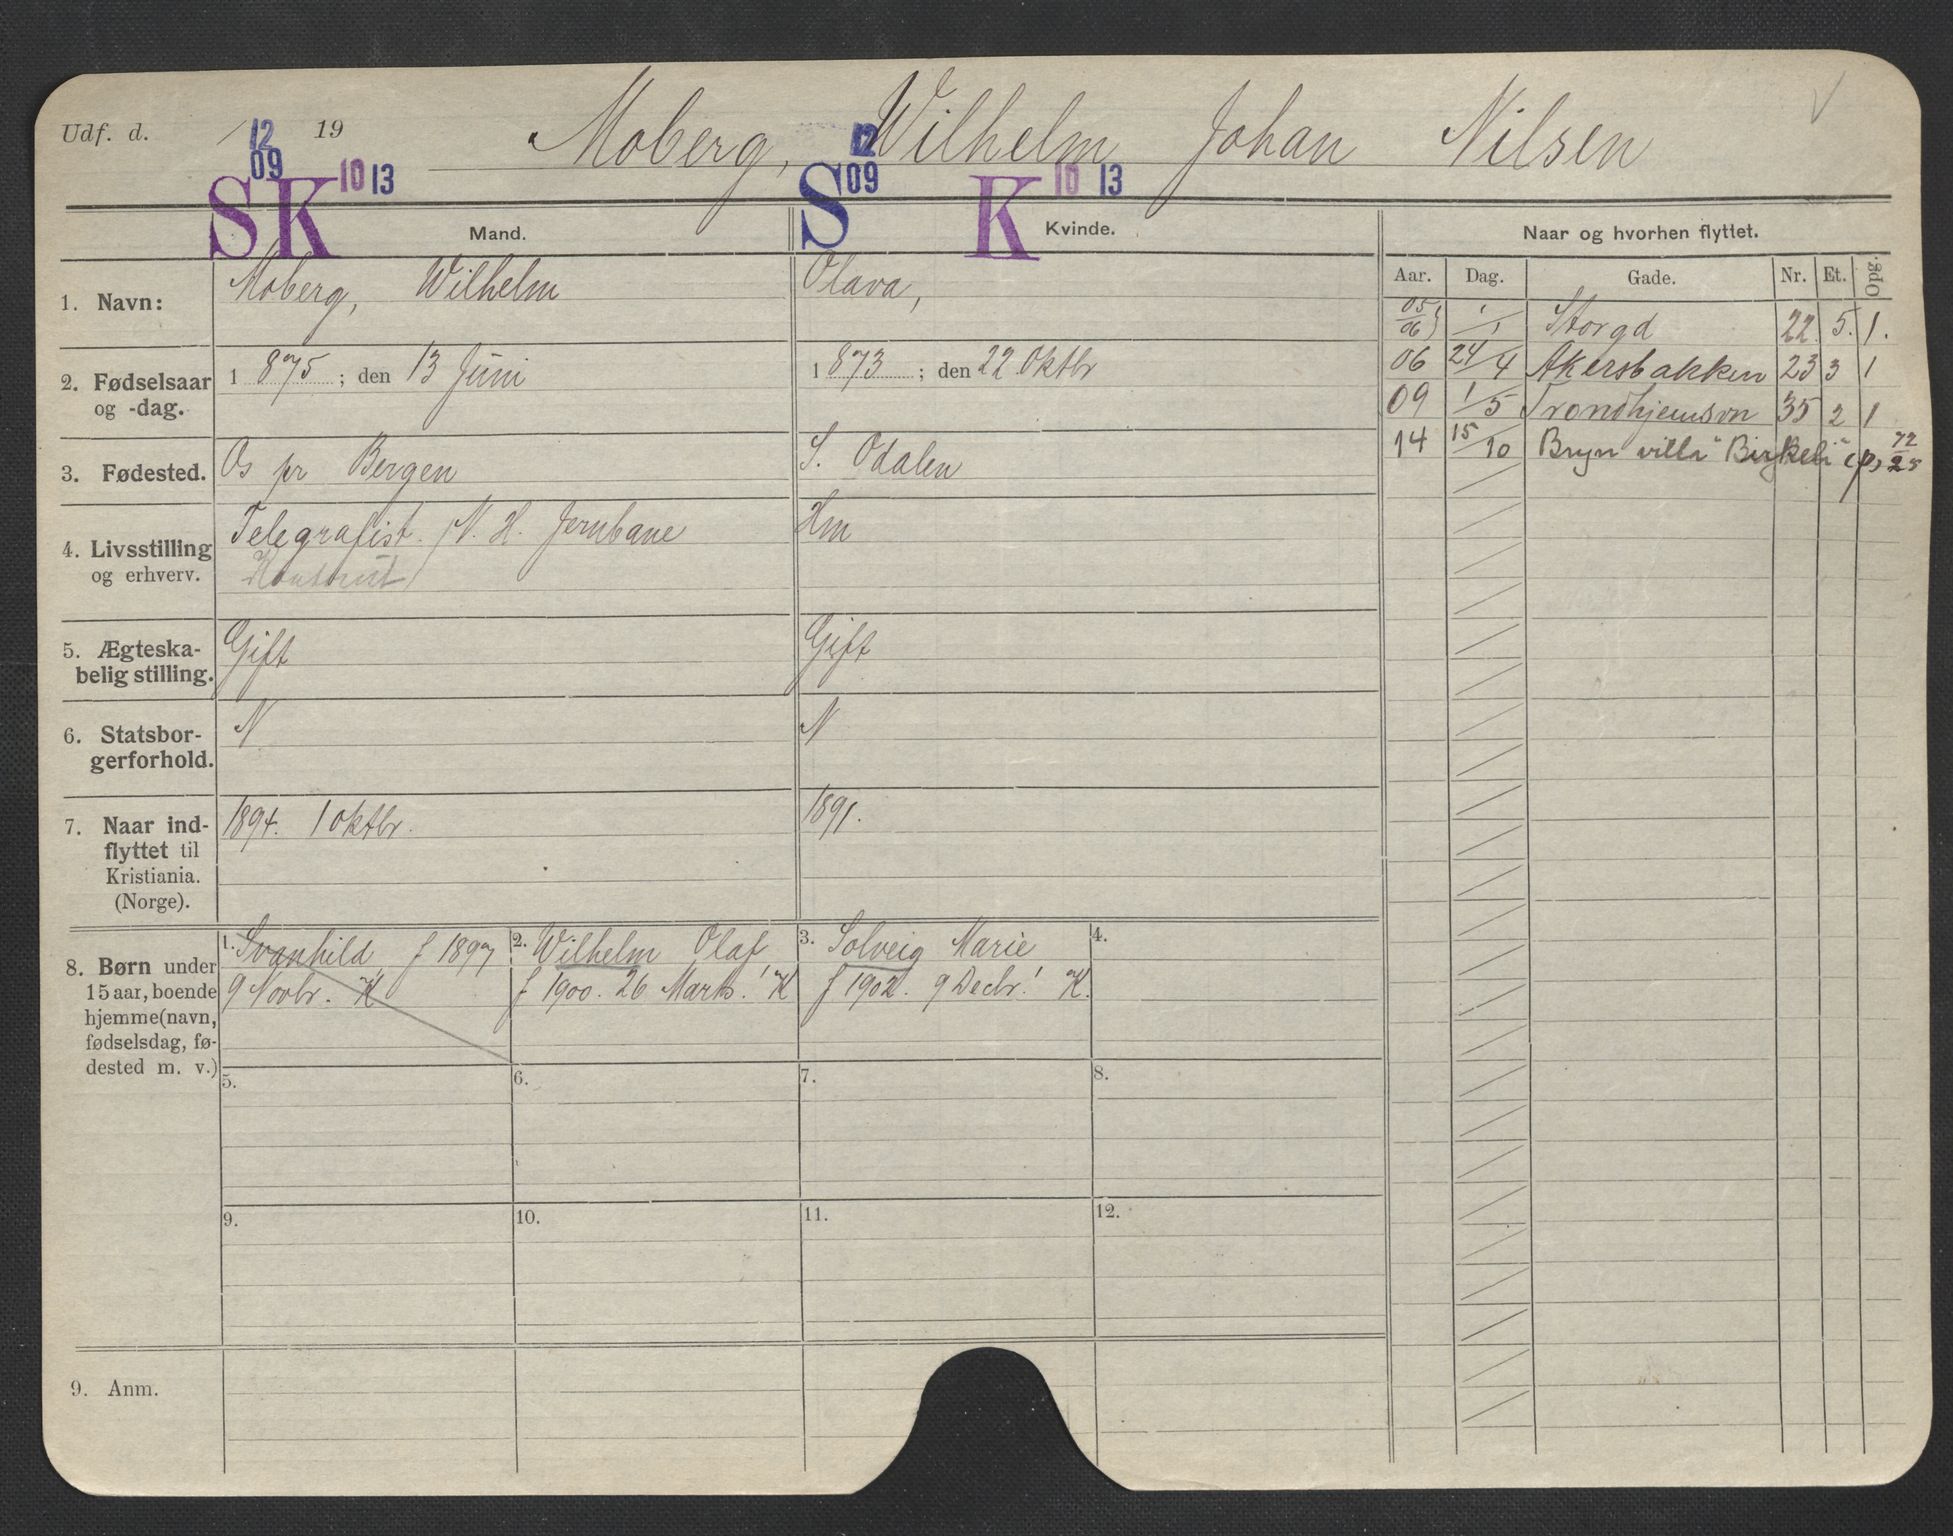 Udf. d. / 12 19 Moberg, Wilhelm Johan Nilsen
09 12
SK 10 13 S 09 K 10 13
Mand. Kvinde. Naar og hvorhen flyttet.
Aar. Dag. Gade. Nr. Et. Opg.
1. Navn: Moberg, Wilhelm Olava,
05/06 1/1 Storgd 22. 5. 1.
2. Fødselsaar og -dag. 1 875 ; den 13 Juni 1 873 ; den 22 Oktbr
06 24/4 Akersbakken 23 3 1
09 1/5 Trondhjemsvn 35 2 1
14 15/10 Bryn villa "Birkeli" (p) 72/25
3. Fødested. Os pr Bergen S. Odalen
4. Livsstilling og erhverv. Telegrafist. N. H. Jernbane Hm
5. Ægteska-
belig stilling. Gift Gift
6. Statsbor-
gerforhold. N N
7. Naar ind-
flyttet til
Kristiania.
(Norge). 1894. 1 Oktbr. 1891.
8. Børn under
15 aar, boende
hjemme (navn,
fødselsdag, fø-
dested m. v.)
1. Svanhild f 1897
9 Novbr. K
2. Wilhelm Olaf
f 1900. 26 Marts! K
3. Solveig Marie
f 1902. 9 Decbr! K.
4.
5. 6. 7. 8.
9. 10. 11. 12.
9. Anm.